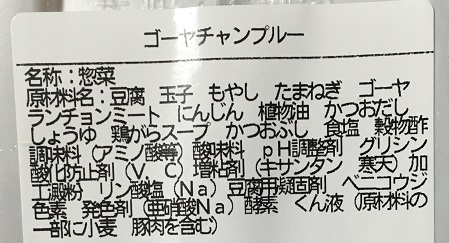 ゴーヤチャンプルー
名称：惣菜
原材料名：豆腐　玉子　もやし　たまねぎ　ゴーヤ
ランチョンミート　にんじん　植物油　かつおだし
しょうゆ　鶏がらスープ　かつおふし　食塩　穀物酢
調味料（アミノ酸等）酸味料　ｐＨ調整剤　グリシン
酸化防止剤（Ｖ．Ｃ）増粘剤（キサンタン　寒天）加
工澱粉　リン酸塩（Ｎａ）豆腐用凝固剤　ベニコウジ
色素　発色剤（亜硝酸Ｎａ）酵素　くん液（原材料の
一部に小麦　豚肉を含む）